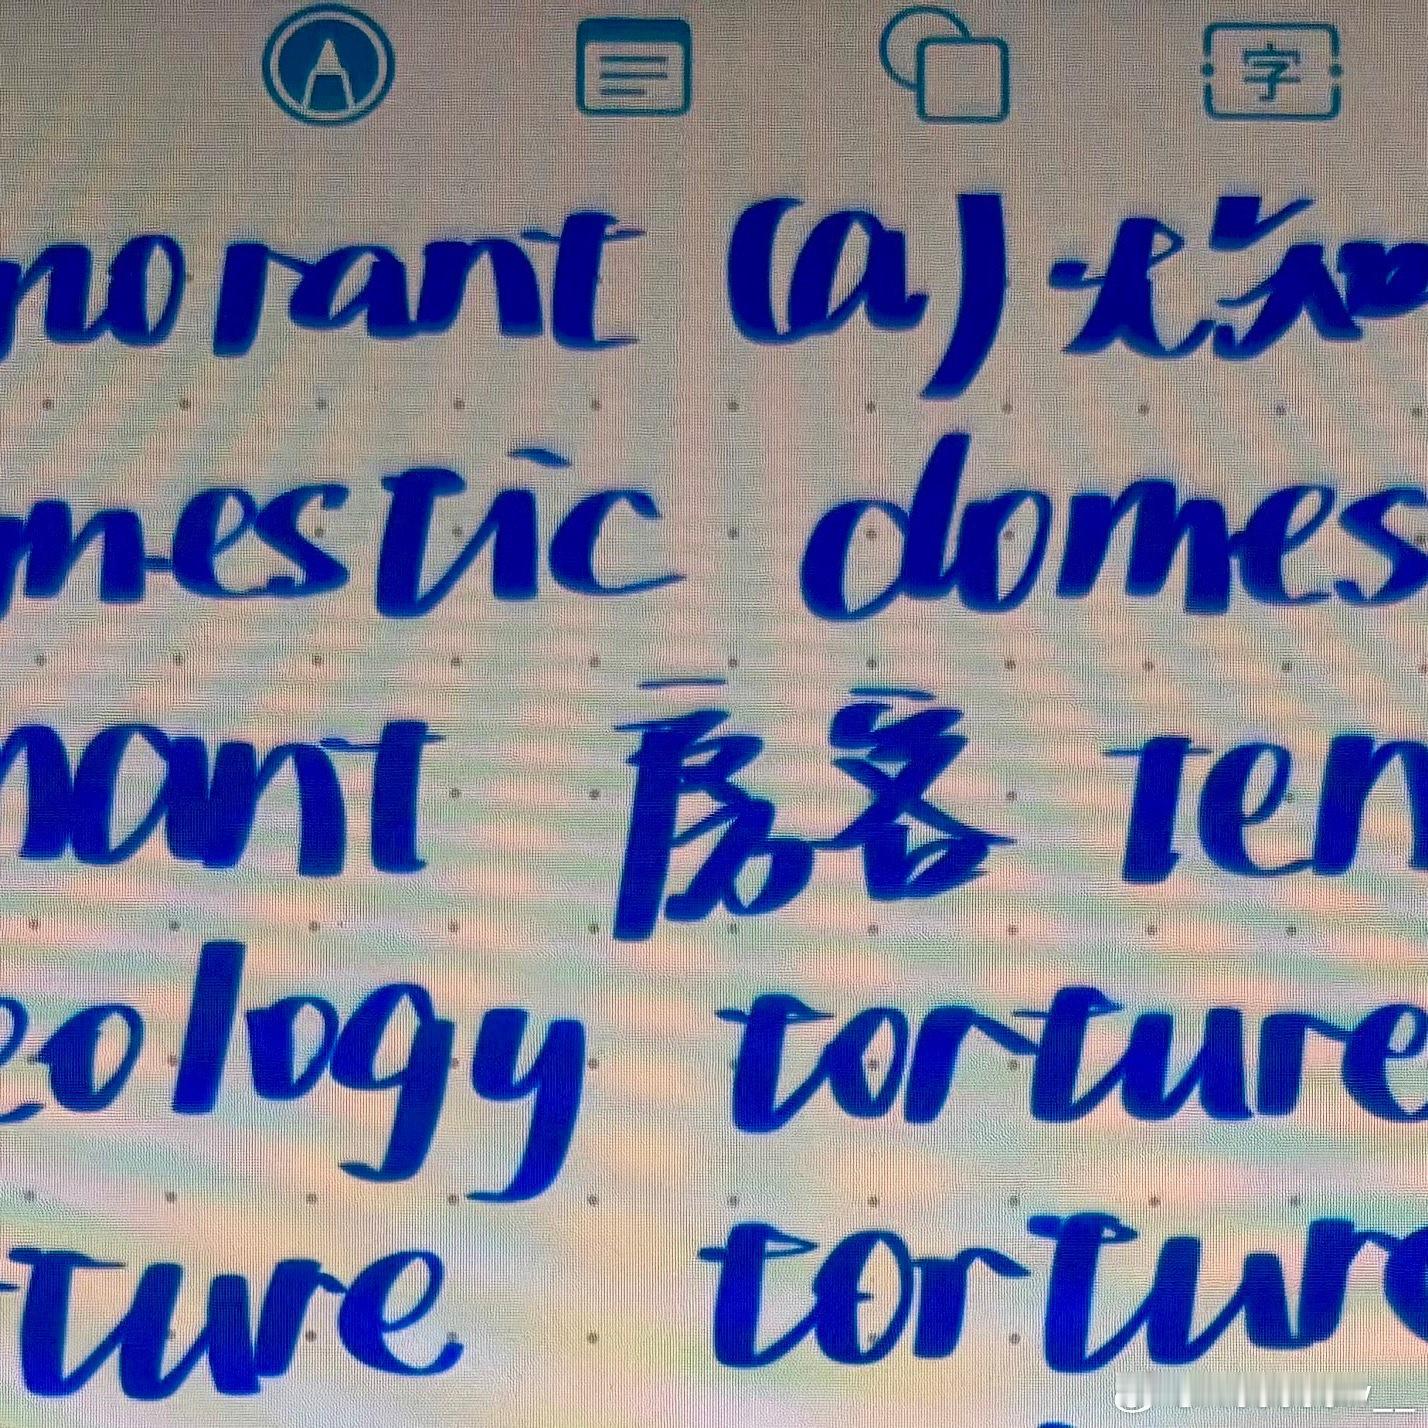 字
norant (a) 无知
mestic domes
nant 房客 ten
eology torture
ture torture